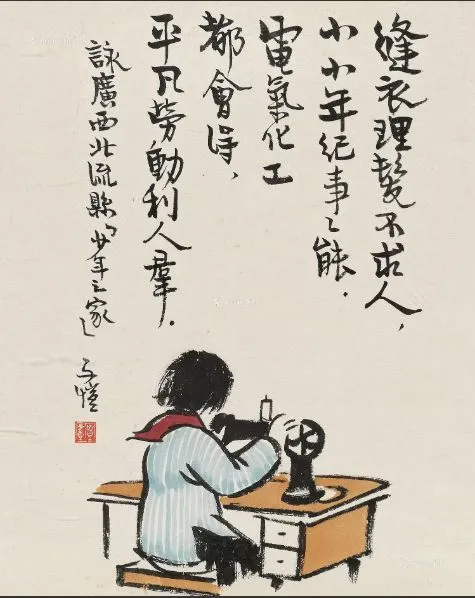 縫衣理髮不求人，
小小年紀事〻能．
電氣化工
都會得、
平凡勞動利人羣．
詠廣西北流縣「少年之家」
子愷